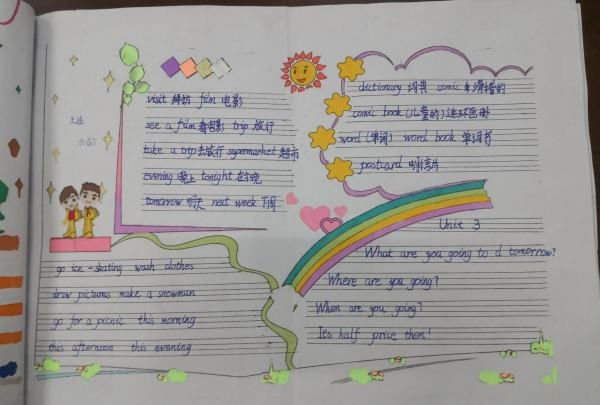 visit 拜访 film 电影
see a film 看电影 trip 旅行
take a trip 去旅行 supermarket 超市
evening 晚上 tonight 在今晚
tomorrow 明天 next week 下周
dictionary 词典 comic 滑稽的
comic book (儿童的)连环画册
word (单词) word book 单词书
postcard 明信片
go ice-skating wash clothes
draw pictures make a snowman
go for a picnic this morning
this afternoon this evening
Unit 3
What are you going to d tomorrow?
Where are you going?
When are you going?
It's half price then!